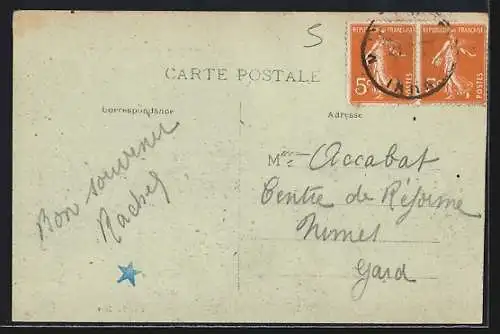 5
REPUBLIQUE FRANÇAISE REPUBLIQUE FRANÇAISE
5c POSTES POSTES
CARTE POSTALE
Correspondance
Adresse
Bon souvenir
Rachel
Accabat
Centre de Réforme
Nimes
Gard